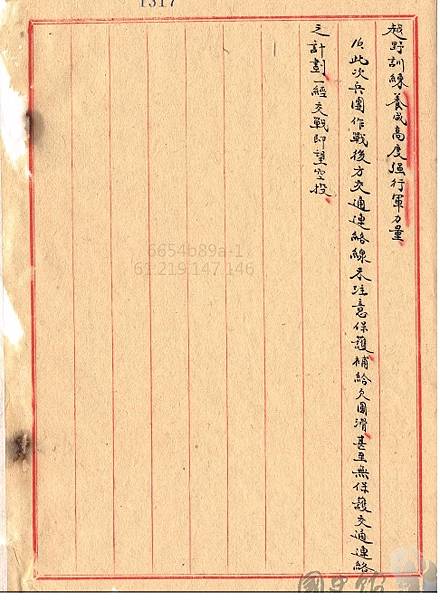 1317
越野訓練養成高度強行軍力量
10此次兵團作戰後方交通連絡線未注意保護補給欠圓滑甚至無保護交通連絡
之計劃一經交戰即望空投
6654b89a-1
61 219 147 146
國史館